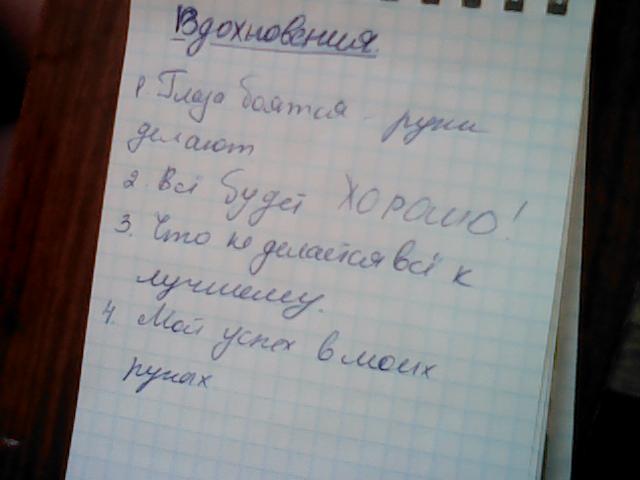 Вдохновения
1. Глаза боятся - руки
делают
2. Всё будет ХОРОШО!
3. Что не делается всё к
лучшему.
4. Мой успех в моих
руках